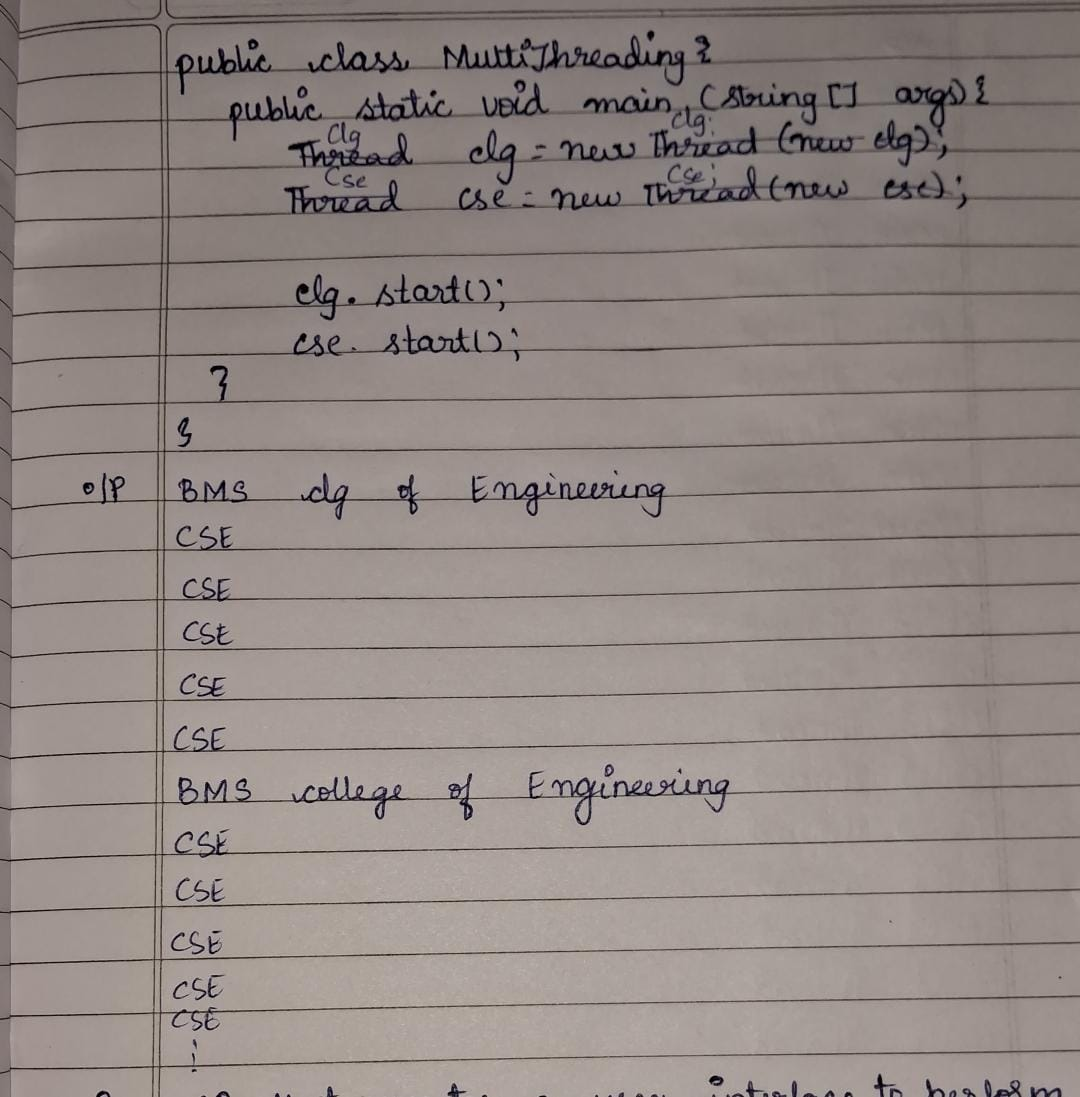 public class MultiThreading {
public static void main (string [] args) {
Clg clg.
Thread clg = new Thread (new clg);
Cse Cse;
Thread cse = new Thread (new cse);
clg. start();
cse. start();
}
}
O/P BMS clg of Engineering
CSE
CSE
CSE
CSE
CSE
BMS college of Engineering
CSE
CSE
CSE
CSE
CSE
interface to perform